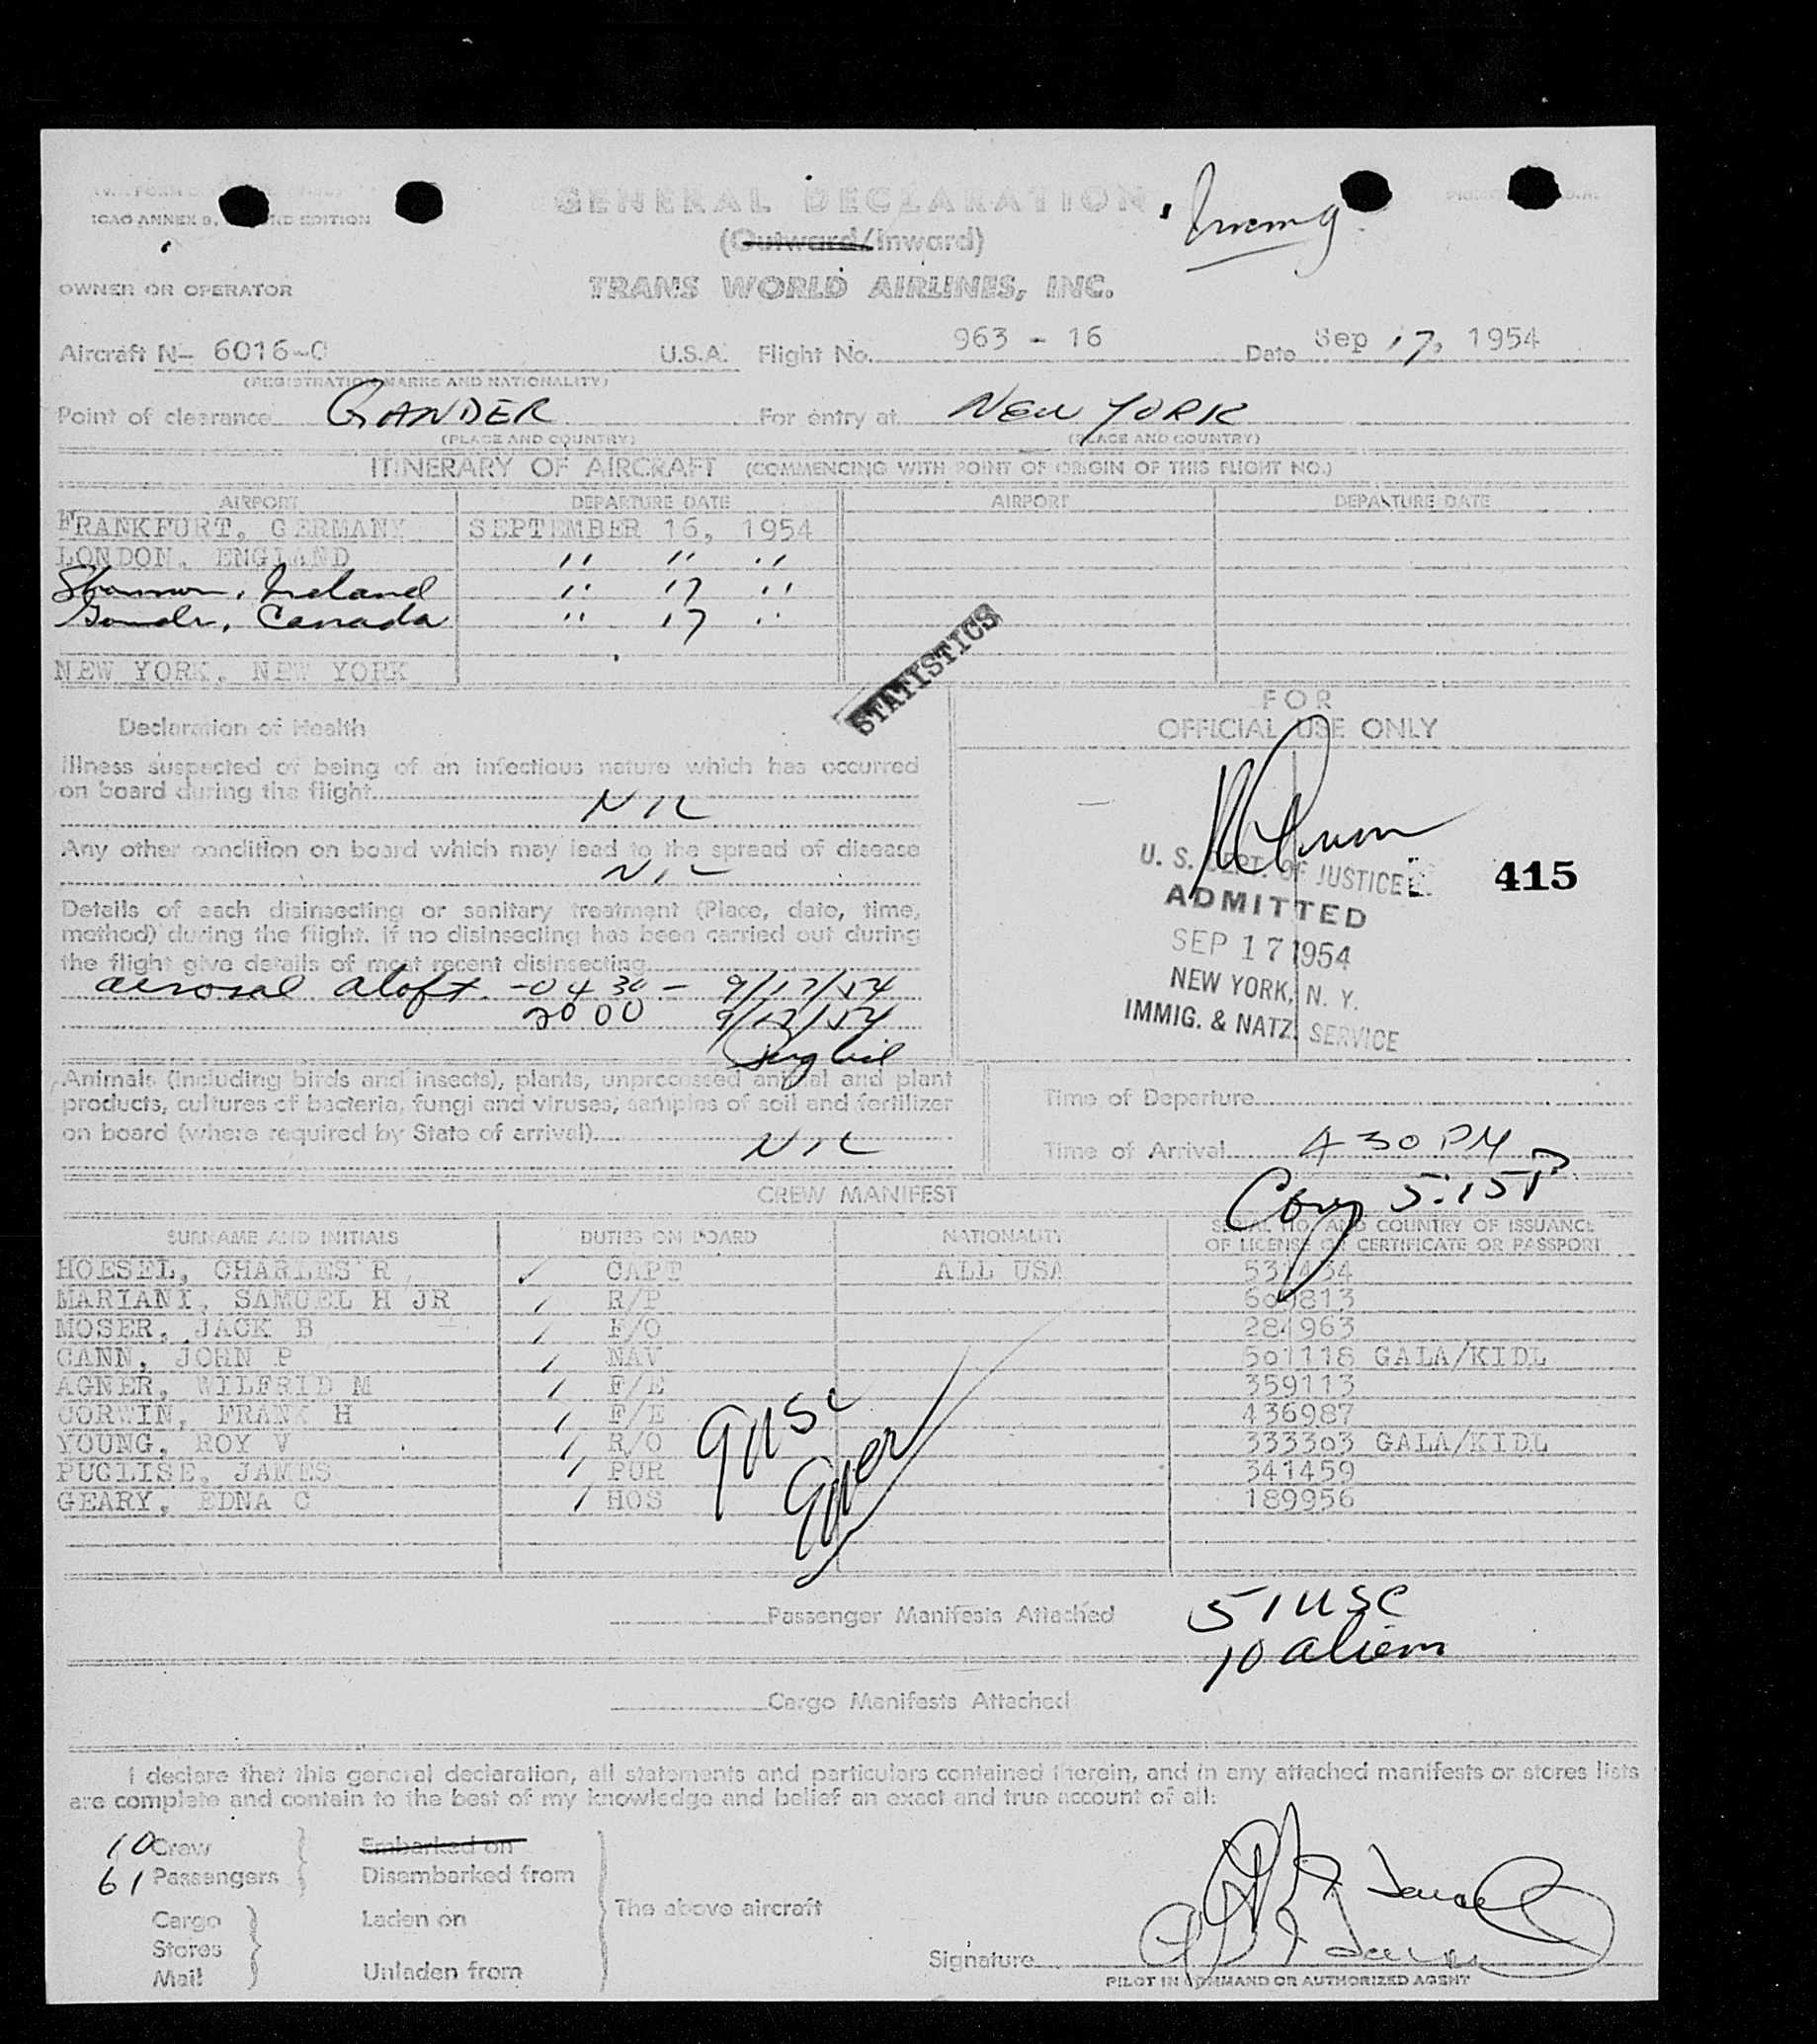 ICAO ANNEX 9, EDITION
GENERAL DECLARATION
(Outward/Inward)
OWNER OR OPERATOR
TRANS WORLD AIRLINES, INC.
Aircraft N- 6016-C U.S.A. Flight No. 963 - 16 Date Sep 17, 1954
(REGISTRATION MARKS AND NATIONALITY)
Point of clearance GANDER For entry at NEW YORK
(PLACE AND COUNTRY) (PLACE AND COUNTRY)
ITINERARY OF AIRCRAFT (COMMENCING WITH POINT OF ORIGIN OF THIS FLIGHT NO.)
AIRPORT DEPARTURE DATE AIRPORT DEPARTURE DATE
FRANKFURT, GERMANY SEPTEMBER 16, 1954
LONDON, ENGLAND " " "
Shannon, Ireland " 17 "
Gander, Canada " 17 "
NEW YORK, NEW YORK
STATISTICS
FOR
OFFICIAL USE ONLY
Declaration of Health
Illness suspected of being of an infectious nature which has occurred
on board during the flight
NIL
Any other condition on board which may lead to the spread of disease
NIL
Details of each disinsecting or sanitary treatment (Place, date, time,
method) during the flight. If no disinsecting has been carried out during
the flight give details of most recent disinsecting
aerosal aloft - 0430 - 9/17/54
2000 9/17/54
U. S. DEPT. OF JUSTICE
415
ADMITTED
SEP 17 1954
NEW YORK, N. Y.
IMMIG. & NATZ. SERVICE
Animals (including birds and insects), plants, unprocessed animal and plant
products, cultures of bacteria, fungi and viruses, samples of soil and fertilizer
on board (where required by State of arrival)
NIL
Time of Departure
Time of Arrival 4 30 PM
5:15P
CREW MANIFEST
SURNAME AND INITIALS DUTIES ON BOARD NATIONALITY SERIAL NO. AND COUNTRY OF ISSUANCE
OF LICENSE OR CERTIFICATE OR PASSPORT
HOESEL, CHARLES R CAPT ALL USA
MARIANI, SAMUEL H JR R/P 609813
MOSER, JACK B F/O 284963
CANN, JOHN P NAV 501118 GALA/KIDL
AGNER, WILFRID M F/E 359113
CORWIN, FRANK H F/E 436987
YOUNG, ROY V R/O 333303 GALA/KIDL
PUGLISE, JAMES PUR 341459
GEARY, EDNA C HOS 189956
9 USC
Passenger Manifests Attached
51 USC
10 aliens
Cargo Manifests Attached
I declare that this general declaration, all statements and particulars contained therein, and in any attached manifests or stores lists
are complete and contain to the best of my knowledge and belief an exact and true account of all:
10 Crew Embarked on
61 Passengers Disembarked from
The above aircraft
Cargo Laden on
Stores
Mail Unladen from
Signature
PILOT IN COMMAND OR AUTHORIZED AGENT